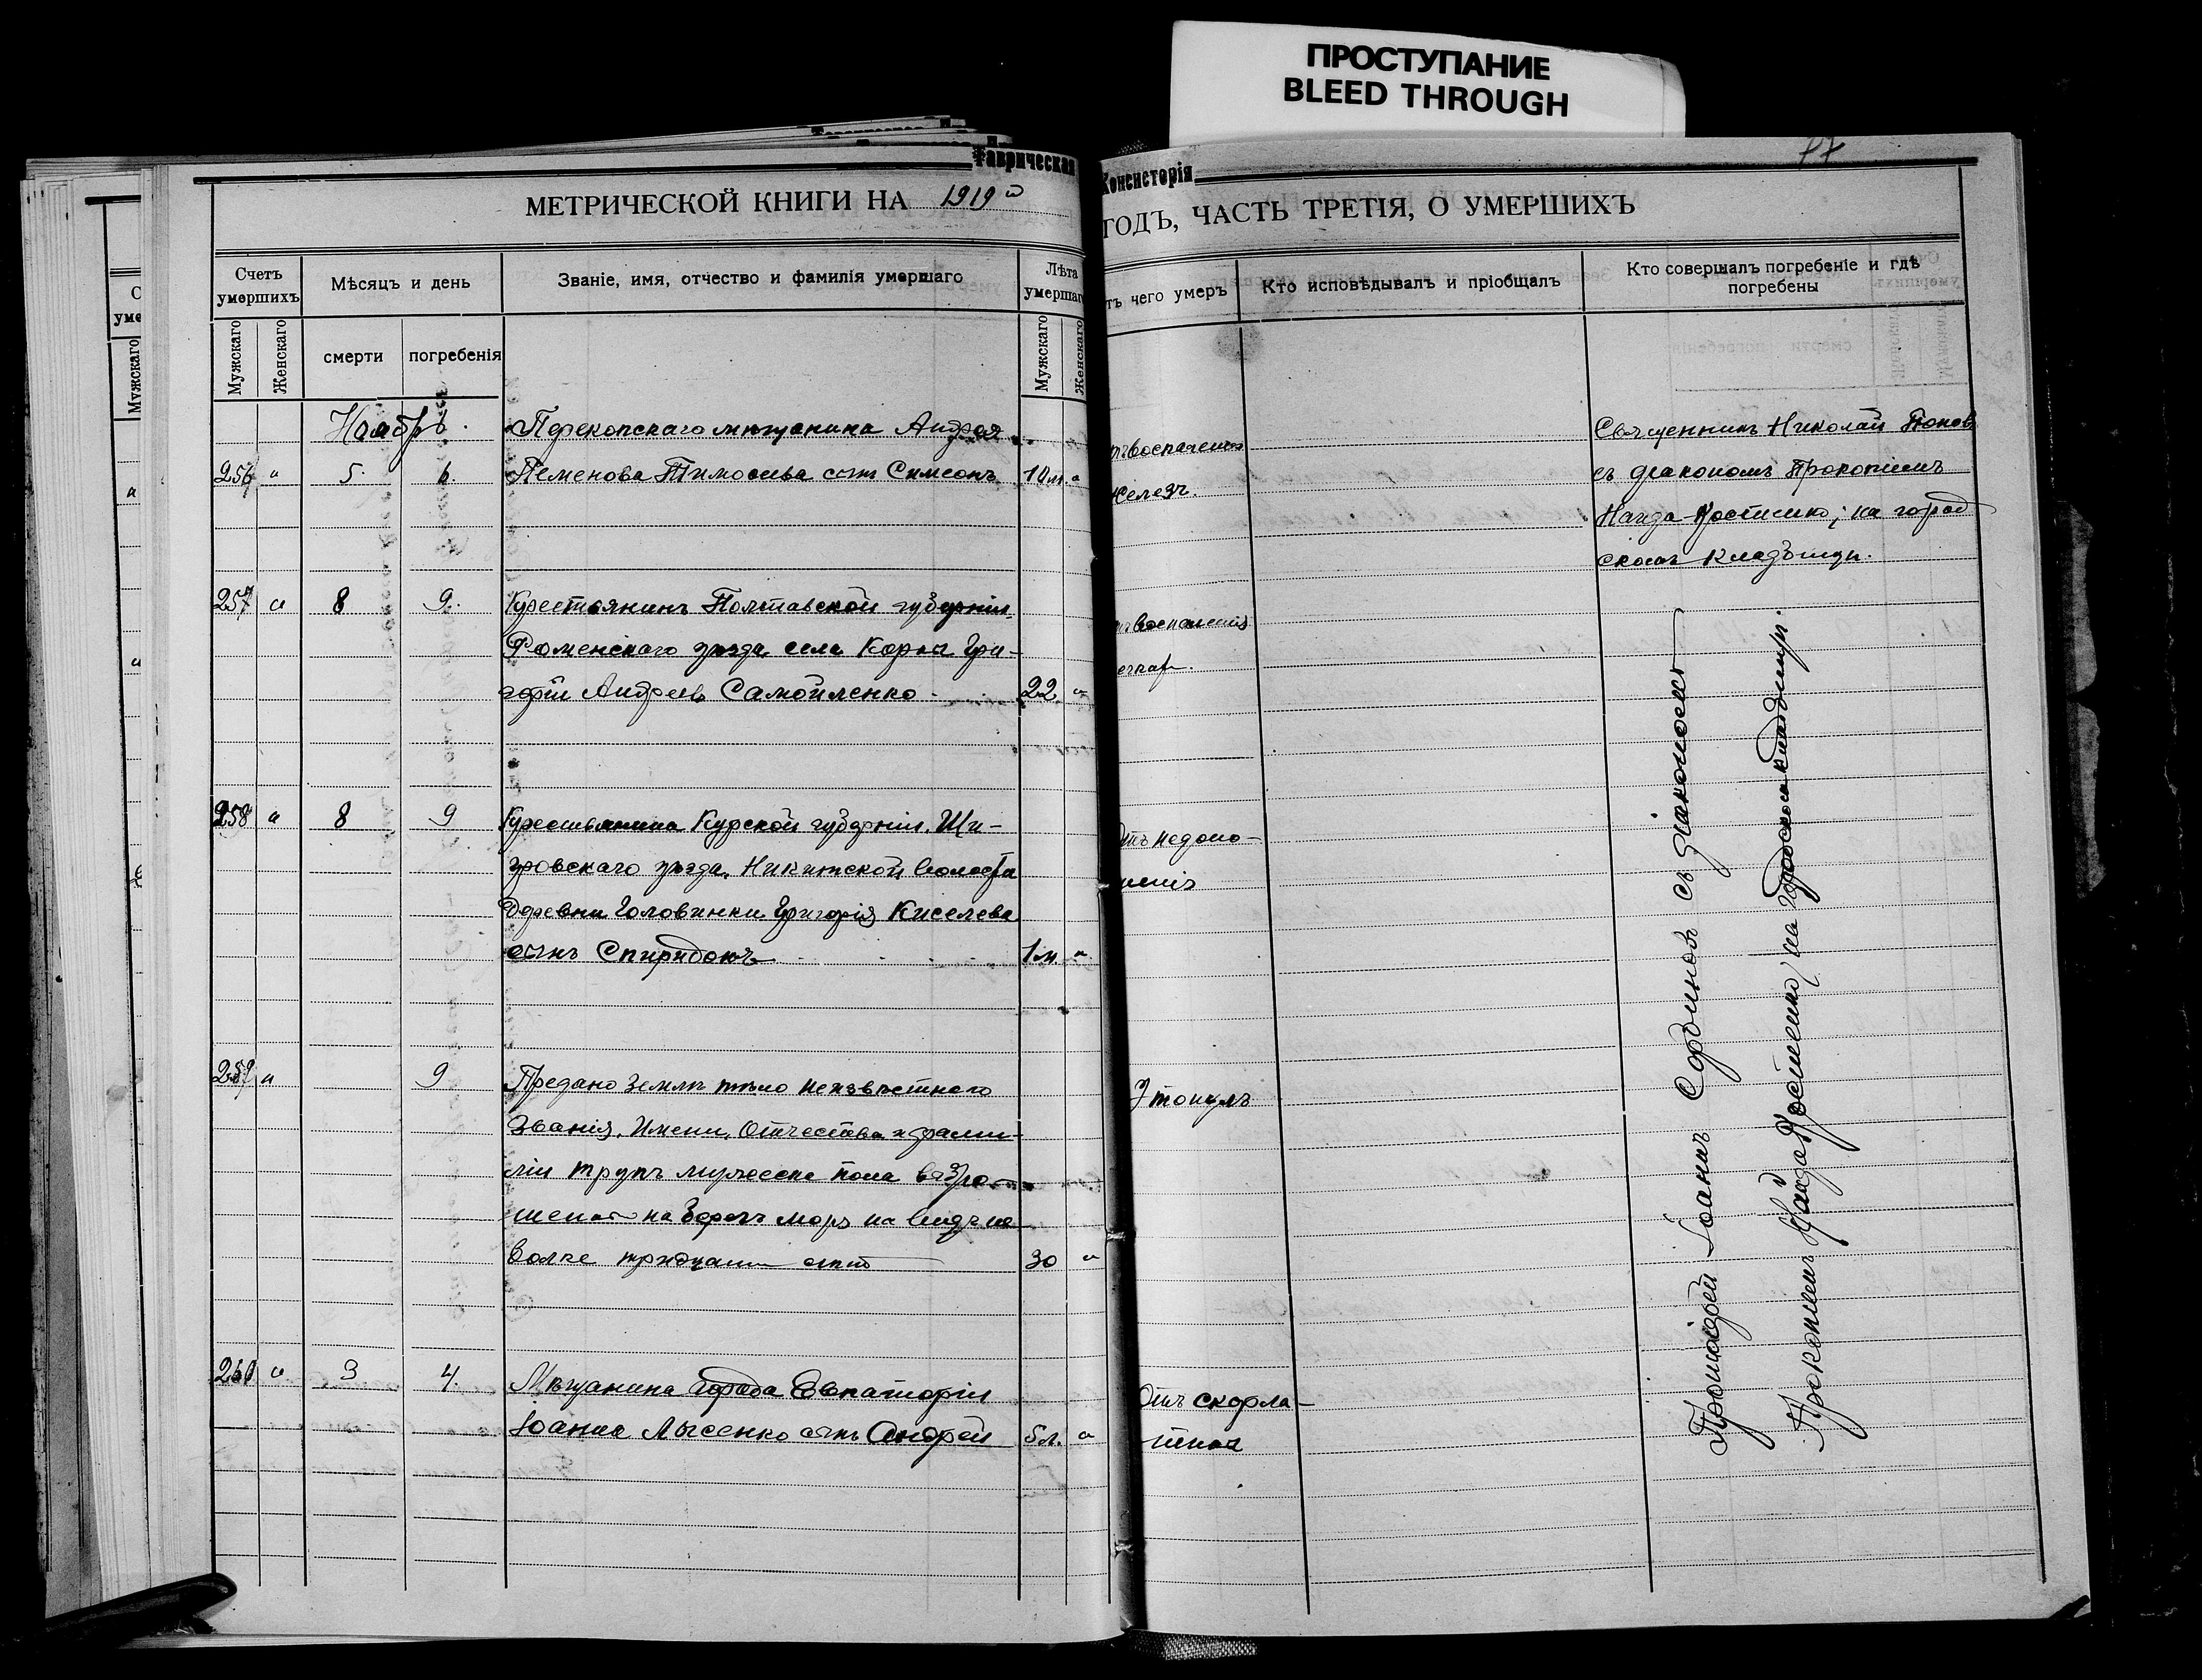 ПРОСТУПАНИЕ
BLEED THROUGH
77
Таврическая Консисторія
МЕТРИЧЕСКОЙ КНИГИ НА 1919 ГОДЪ, ЧАСТЬ ТРЕТІЯ, О УМЕРШИХЪ
Счетъ умершихъ
Мѣсяцъ и день
Званіе, имя, отчество и фамилія умершаго
Лѣта умершаго
тъ чего умеръ
Кто исповѣдывалъ и пріобщалъ
Кто совершалъ погребеніе и гдѣ погребены
Мужскаго
Женскаго
смерти
погребенія
Мужскаго
Женскаго
Ноябрь.
Перекопскаго мѣщанина Андрея
256 " 5. 6. Тимофеева сынъ Симеонъ 10 м. "
тъ воспаленія
желез.
Священникъ Николай Попов
съ діакономъ Прокопіемъ
; на город
скомъ кладбищѣ.
257 " 8 9. Крестьянинъ Полтавской губерніи,
Роменскаго уѣзда села Коровы Гри-
горій Андреевъ Самойленко 22 "
тъ воспаленія
258 " 8 9 Крестьянина Курской губерніи, Щи-
гровскаго уѣзда, Никитской волости
деревни Головинки Григорія Киселева
сынъ Спиридонъ 1 м. "
Отъ недоно-
шенія
259 " 9 Предано землѣ тѣло неизвѣстнаго
званія, имени, отчества и фами-
ліи трупъ мужеска пола
на берегъ моря на видъ не
болѣе тридцати лѣтъ 30 "
Утонулъ
260 " 3 4. Мѣщанина города Евпаторіи
Іоанна Лысенко сынъ Андрей 5 л. "
Отъ скарла-
тины
Протоіерей Іоаннъ Сербиновъ съ діакономъ
Прокопіемъ на городскомъ кладбищѣ.